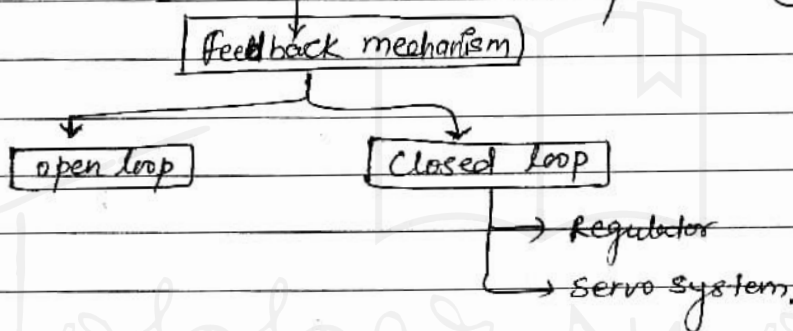 Feedback mechanism
open loop
Closed loop
Regulator
Servo system.